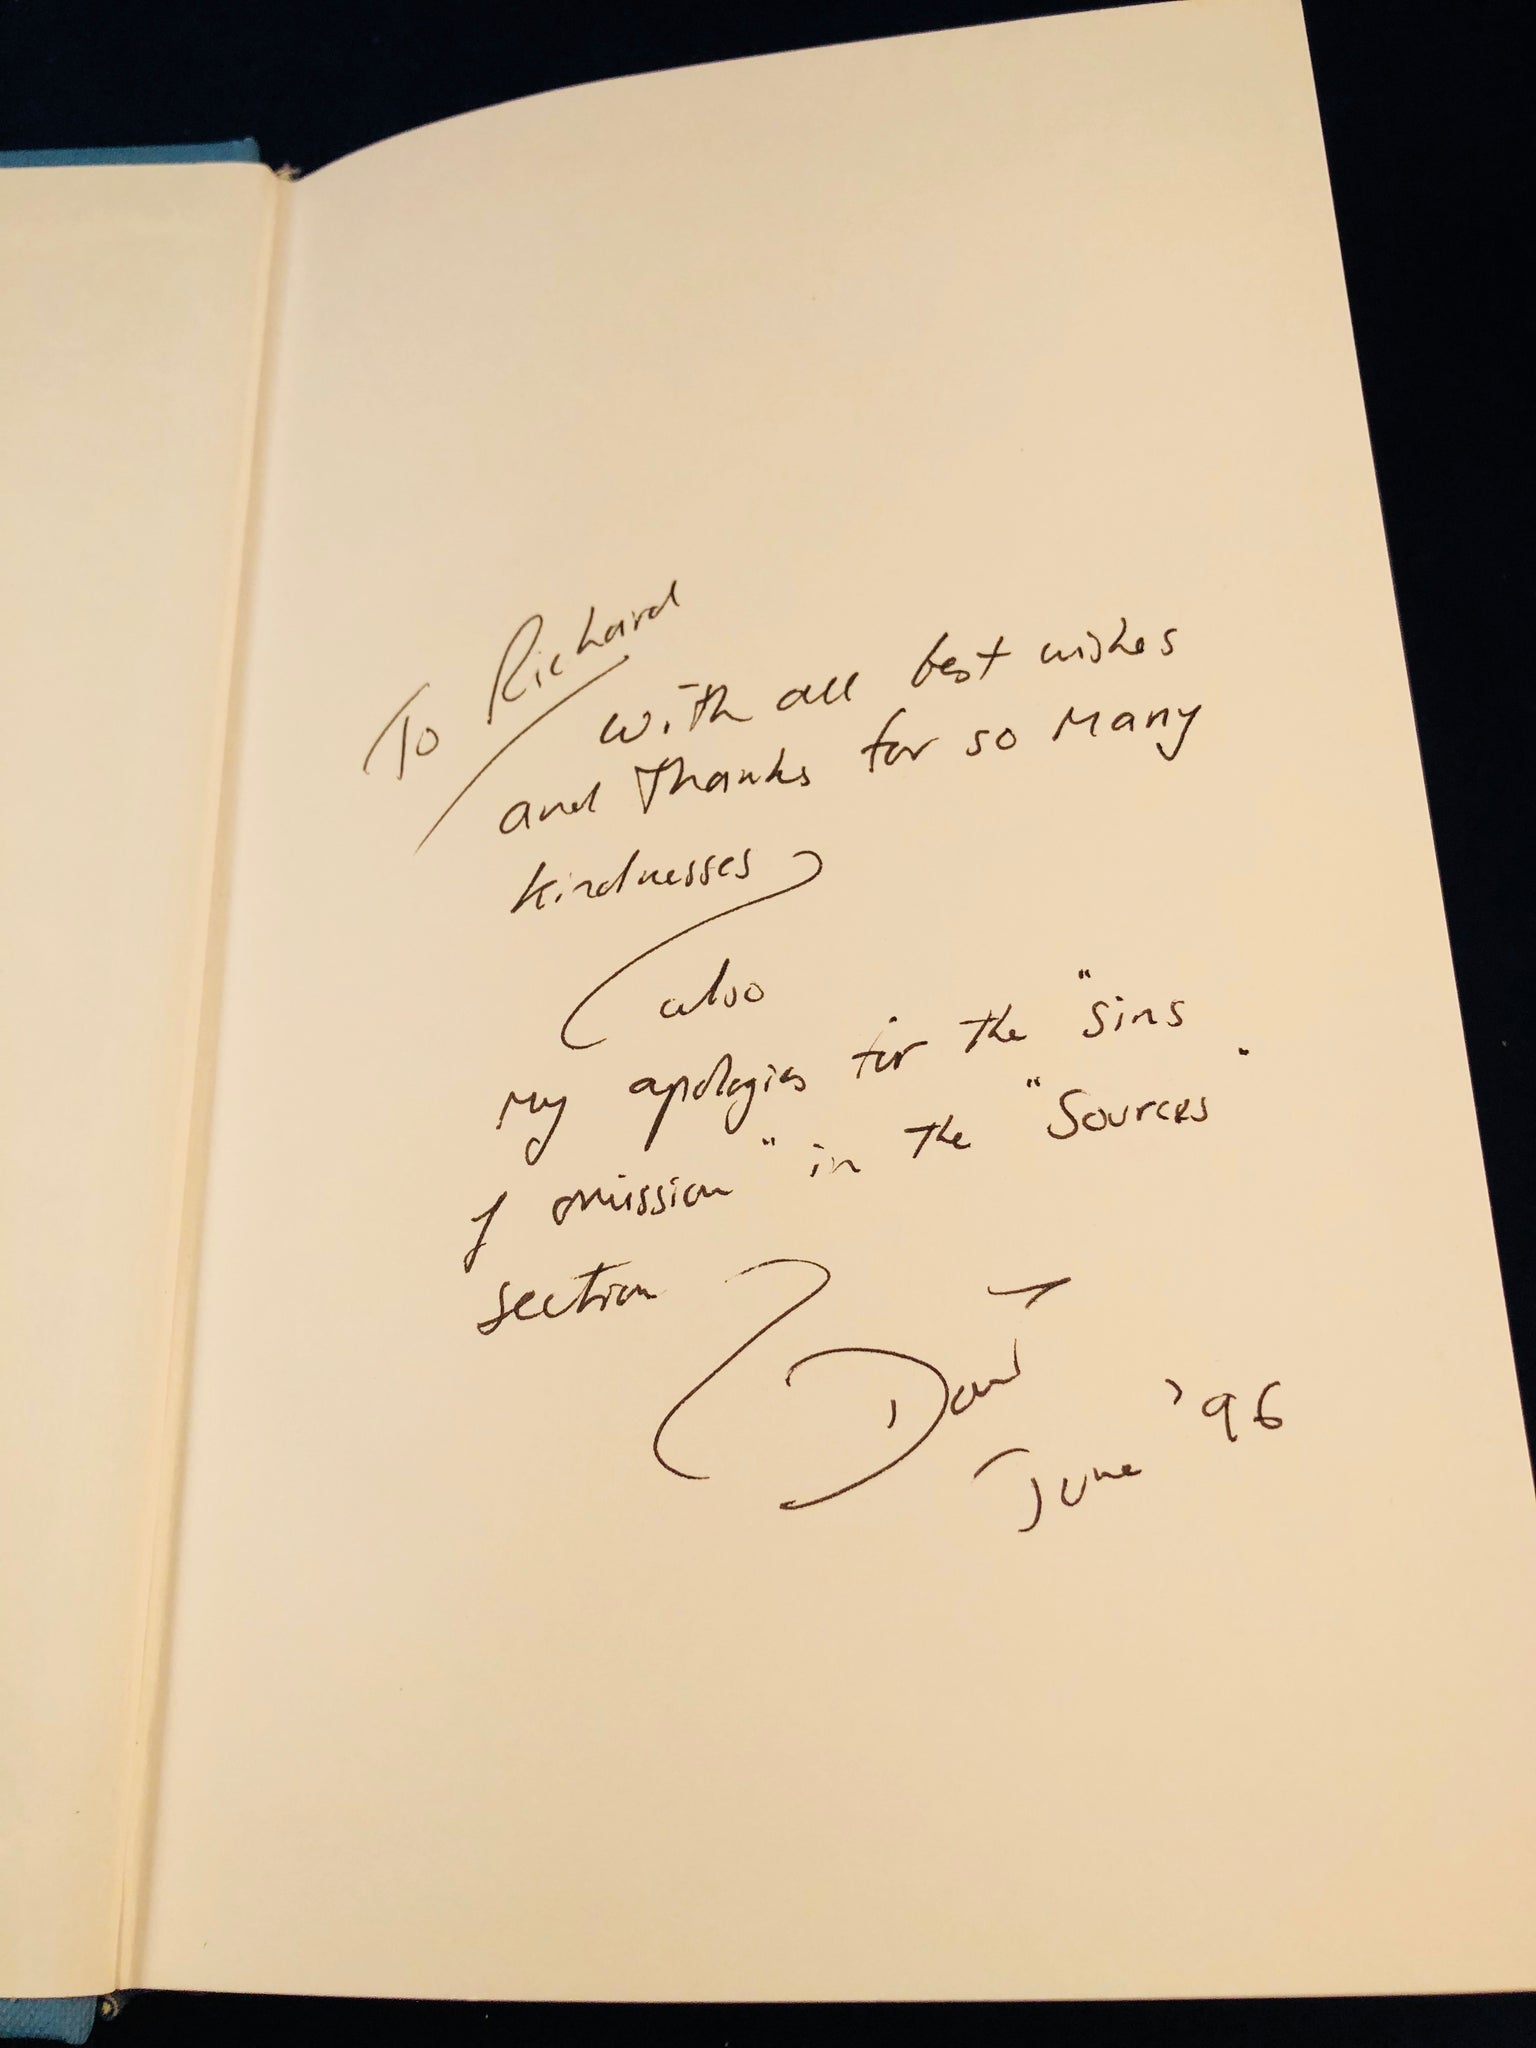 To Richard
with all best wishes
and thanks for so many
kindnesses
also
my apologies for the "sins
of omission" in the "Sources"
section
David
June '96